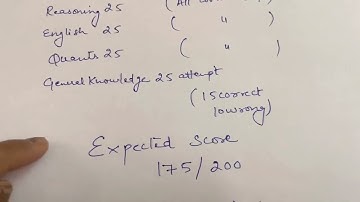 Reasoning 25 (All
English 25 ( " )
Quants 25 ( " )
General Knowledge 25 attempt
(15 correct
10 wrong)
Expected Score
175/200